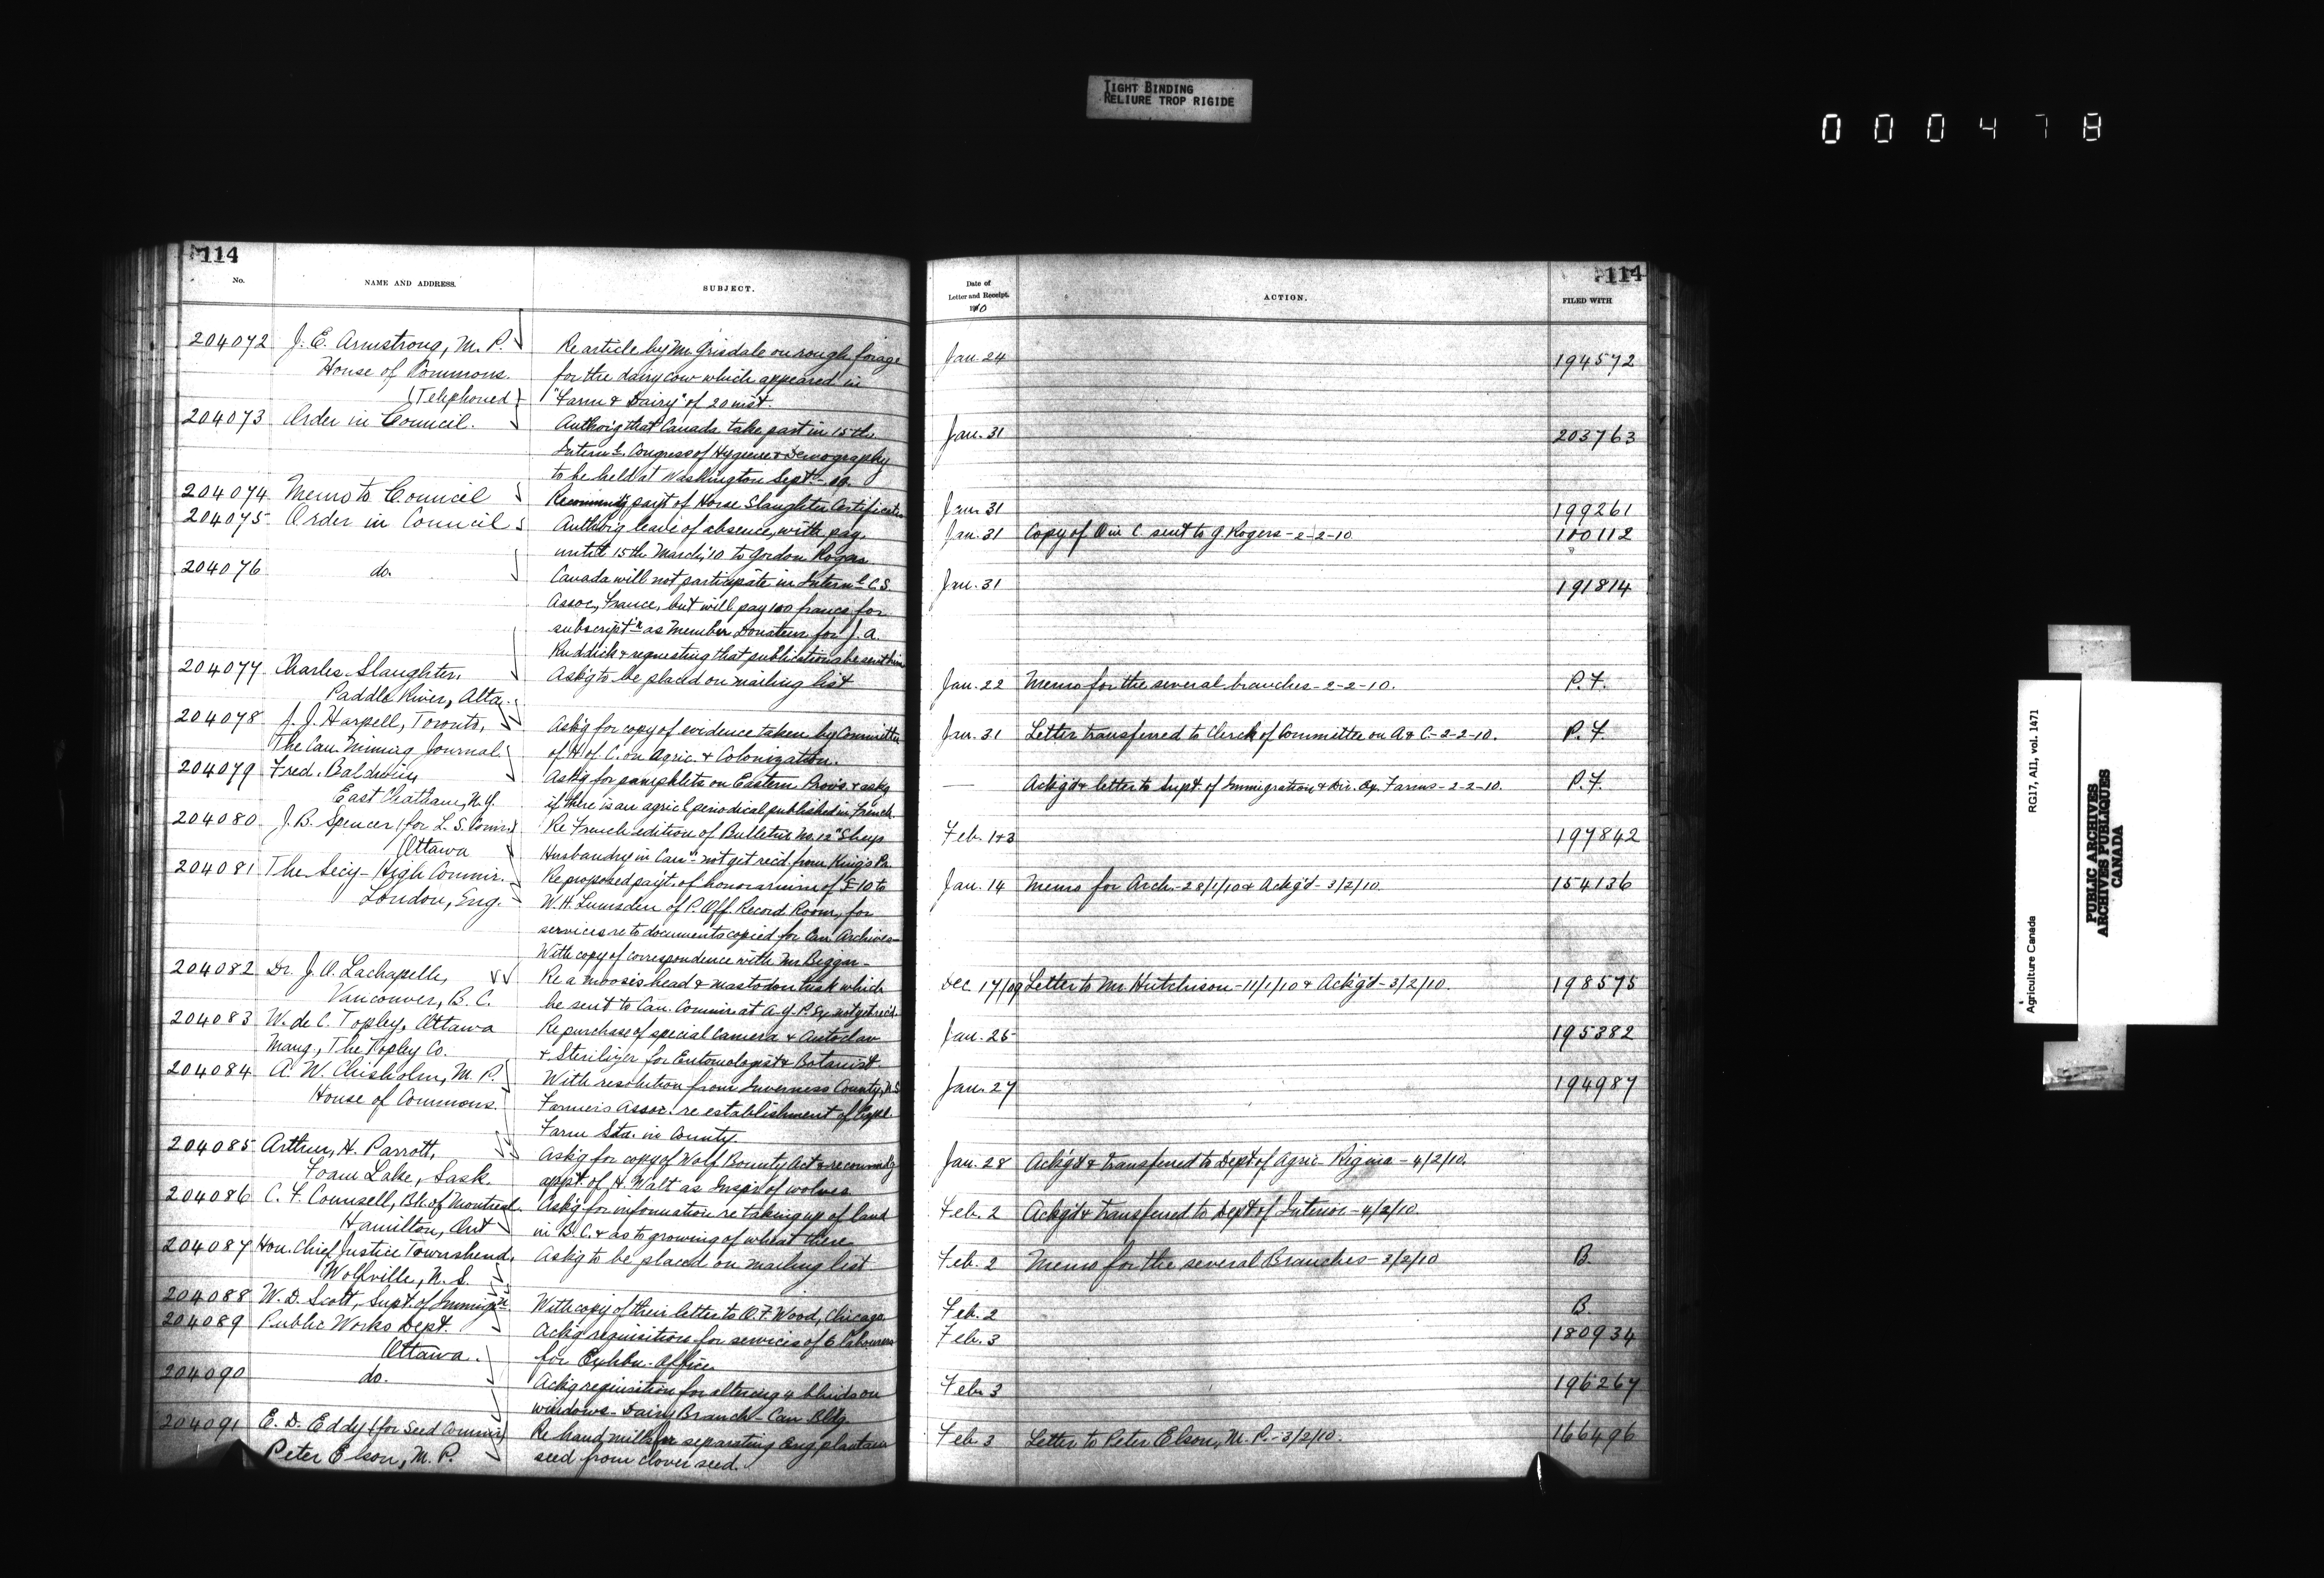 TIGHT BINDING
RELIURE TROP RIGIDE
000478
114
No. NAME AND ADDRESS. SUBJECT.
204072 J. E. Armstrong, M. P. Re article by Mr. Grisdale on rough forage
House of Commons. for the dairy cow which appeared in
(Telephoned) "Farm & Dairy" of 20 inst.
204073 Order in Council. Authorig that Canada take part in 15th
Internl. Congress of Hygiene & Demography
to be held at Washington Sept.
204074 Memo to Council Recommendg payt of Horse Slaughter Certificates
204075 Order in Council Authorig leave of absence, with pay,
until 15th March, '10 to Gordon Rogers
204076 do. Canada will not participate in Internl C. S.
Assoc, France, but will pay 100 francs for
subscriptn as Member Donateur for J. A.
Ruddick & requesting that publications be sent him
204077 Charles Slaughter, Ask'g to be placed on mailing list
Paddle River, Alta.
204078 J. J. Harpell, Toronto, Ask'g for copy of evidence taken by Committee
The Can. Mining Journal of H of C. on Agric. & Colonization.
204079 Fred. Baldwin Ask'g for pamphlets on Eastern Provs & askg
East Chatham, N.Y. if there is an agricl periodical published in French.
204080 J. B. Spencer (for L. S. Commr) Re French edition of Bulletin No. 12 "Sheep
Ottawa Husbandry in Can" not yet rec'd. from King's Pr.
204081 The Secy - High Commr. Re proposed payt. of honorarium of £10 to
London, Eng. W. H. Lumsden of P. Off. Record Room, for
services re to documents copied for Can Archives -
With copy of correspondence with Mr. Biggar -
204082 Dr. J. O. Lachapelle, Re a moose's head & mastodon tusk which
Vancouver, B. C. be sent to Can. Commr at A.Y.P. Ex. not yet rec'd.
204083 W. de C. Topley, Ottawa Re purchase of special Camera & Autoclav
Mang, The Topley Co. & Sterilizer for Entomologist & Botanist
204084 A. W. Chisholm, M. P. With resolution from Inverness County, N.S.
House of Commons. Farmers Assoc. re establishment of Exptl
Farm Sta. in County
204085 Arthur, H. Parrott, Ask'g for copy of Wolf Bounty Act & recommdg
Foam Lake, Sask. appt. of H. Walt as Inspr of wolves
204086 C. F. Counsell, Bk. of Montreal. Ask'g for information re taking up of land
Hamilton, Ont in B. C. & as to growing of wheat there
204087 Hon. Chief Justice Townshend, Ask'g to be placed on mailing list
Wolfville, N. S.
204088 W. D. Scott, Supt. of Immigrn With copy of their letter to O. F. Wood, Chicago
204089 Public Works Dept. Ack'g requisition for services of 6 labourers
Ottawa. for Exhbn. Office
204090 do. Ack'g requisition for altering 4 blinds on
windows - Dairy Branch - Can Bldg
204091 E. D. Eddy (for Seed Commr) Re hand mill for separating Eng plantain
Peter Elson, M. P. seed from clover seed.
114
Date of
Letter and Receipt. ACTION. FILED WITH
1910
Jan. 24 194572
Jan. 31 203763
Jan. 31 199261
Jan. 31 Copy of O in C. sent to G. Rogers - 2-2-10 110112
Jan. 31 191814
Jan. 22 Memo for the several branches - 2-2-10. P. F.
Jan. 31 Letter transferred to Clerk of Committee on A & C - 2-2-10. P. F.
— Ackg'd & letter to Supt of Immigration & Dir. Ex. Farms - 2-2-10. P. F.
Feb. 1+3 197842
Jan. 14 Memo for Arch. - 28/1/10 & Ackg'd - 3/2/10. 154136
Dec 17/09 Letter to Mr. Hutchison - 11/1/10 & Ackg'd - 3/2/10. 198575
Jan. 25 195382
Jan. 27 194987
Jan. 28 Ackg'd & transferred to Dept of Agric - Regina - 4/2/10.
Feb. 2 Ackg'd & transferred to Dept of Interior - 4/2/10.
Feb. 2 Memo for the several Branches - 3/2/10 B.
Feb. 2 B.
Feb. 3 180934
Feb. 3 196267
Feb. 3 Letter to Peter Elson, M. P. - 3/2/10. 166496
Agriculture Canada RG17, AI1, vol. 1471
PUBLIC ARCHIVES
ARCHIVES PUBLIQUES
CANADA